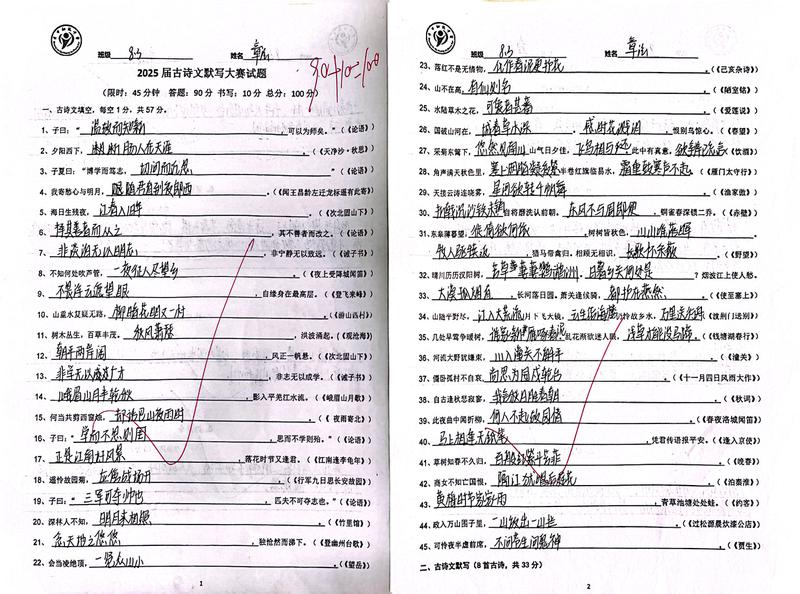 班级 8.3 姓名 章法
2025 届古诗文默写大赛试题
90+10=100
（限时：45 分钟 答题：90 分 书写：10 分 总分：100 分）
一、古诗文填空，每空 1 分，共 57 分。
1、子曰：“温故而知新，可以为师矣。”（《论语》）
2、夕阳西下，断肠人在天涯。（《天净沙·秋思》）
3、子夏曰：“博学而笃志，切问而近思”（《论语》）
4、我寄愁心与明月，随君直到夜郎西（《闻王昌龄左迁龙标遥有此寄》）
5、海日生残夜，江春入旧年。（《次北固山下》）
6、择其善者而从之，其不善者而改之。（《论语》）
7、非淡泊无以明志，非宁静无以致远。（《诫子书》）
8、不知何处吹芦管，一夜征人尽望乡。（《夜上受降城闻笛》）
9、不畏浮云遮望眼，自缘身在最高层。（《登飞来峰》）
10、山重水复疑无路，柳暗花明又一村。（《游山西村》）
11、树木丛生，百草丰茂。秋风萧瑟，洪波涌起。（《观沧海》）
12、潮平两岸阔，风正一帆悬。（《次北固山下》）
13、非学无以广才，非志无以成学。（《诫子书》）
14、峨眉山月半轮秋，影入平羌江水流。（《峨眉山月歌》）
15、何当共剪西窗烛，却话巴山夜雨时。（《夜雨寄北》）
16、子曰：“学而不思则罔，思而不学则殆。”（《论语》）
17、正是江南好风景，落花时节又逢君。（《江南逢李龟年》）
18、遥怜故园菊，应傍战场开。（《行军九日思长安故园》）
19、子曰：“三军可夺帅也，匹夫不可夺志也。”（《论语》）
20、深林人不知，明月来相照。（《竹里馆》）
21、念天地之悠悠，独怆然而涕下。（《登幽州台歌》）
22、会当凌绝顶，一览众山小。（《望岳》）
1
班级 8.3 姓名 章法
23、落红不是无情物，化作春泥更护花。（《己亥杂诗》）
24、山不在高，有仙则名。（《陋室铭》）
25、水陆草木之花，可爱者甚蕃。（《爱莲说》）
26、国破山河在，城春草木深。感时花溅泪，恨别鸟惊心。（《春望》）
27、采菊东篱下，悠然见南山。山气日夕佳，飞鸟相与还。此中有真意，欲辨已忘言。（《饮酒》）
28、角声满天秋色里，塞上燕脂凝夜紫。半卷红旗临易水，霜重鼓寒声不起。（《雁门太守行》）
29、天接云涛连晓雾，星河欲转千帆舞。（《渔家傲》）
30、折戟沉沙铁未销，自将磨洗认前朝。东风不与周郎便，铜雀春深锁二乔。（《赤壁》）
31、东皋薄暮望，徙倚欲何依。树树皆秋色，山山唯落晖。
牧人驱犊返，猎马带禽归。相顾无相识，长歌怀采薇。（《野望》）
32、晴川历历汉阳树，芳草萋萋鹦鹉洲。日暮乡关何处是？烟波江上使人愁。
33、大漠孤烟直，长河落日圆。萧关逢候骑，都护在燕然。（《使至塞上》）
34、山随平野尽，江入大荒流。月下飞天镜，云生结海楼。仍怜故乡水，万里送行舟。（《渡荆门送别》）
35、几处早莺争暖树，谁家新燕啄春泥。乱花渐欲迷人眼，浅草才能没马蹄。（《钱塘湖春行》）
36、河流大野犹嫌束，山入潼关不解平。（《潼关》）
37、僵卧孤村不自哀，尚思为国戍轮台。（《十一月四日风雨大作》）
38、自古逢秋悲寂寥，我言秋日胜春朝。（《秋词》）
39、此夜曲中闻折柳，何人不起故园情。（《春夜洛城闻笛》）
40、马上相逢无纸笔，凭君传语报平安。（《逢入京使》）
41、草树知春不久归，百般红紫斗芳菲。（《晚春》）
42、商女不知亡国恨，隔江犹唱后庭花。（《泊秦淮》）
43、黄梅时节家家雨，青草池塘处处蛙。（《约客》）
44、政入万山围子里，一山放出一山拦。（《过松源晨炊漆公店》）
45、可怜夜半虚前席，不问苍生问鬼神。（《贾生》）
二、古诗文默写（8 首古诗，共 33 分）
2